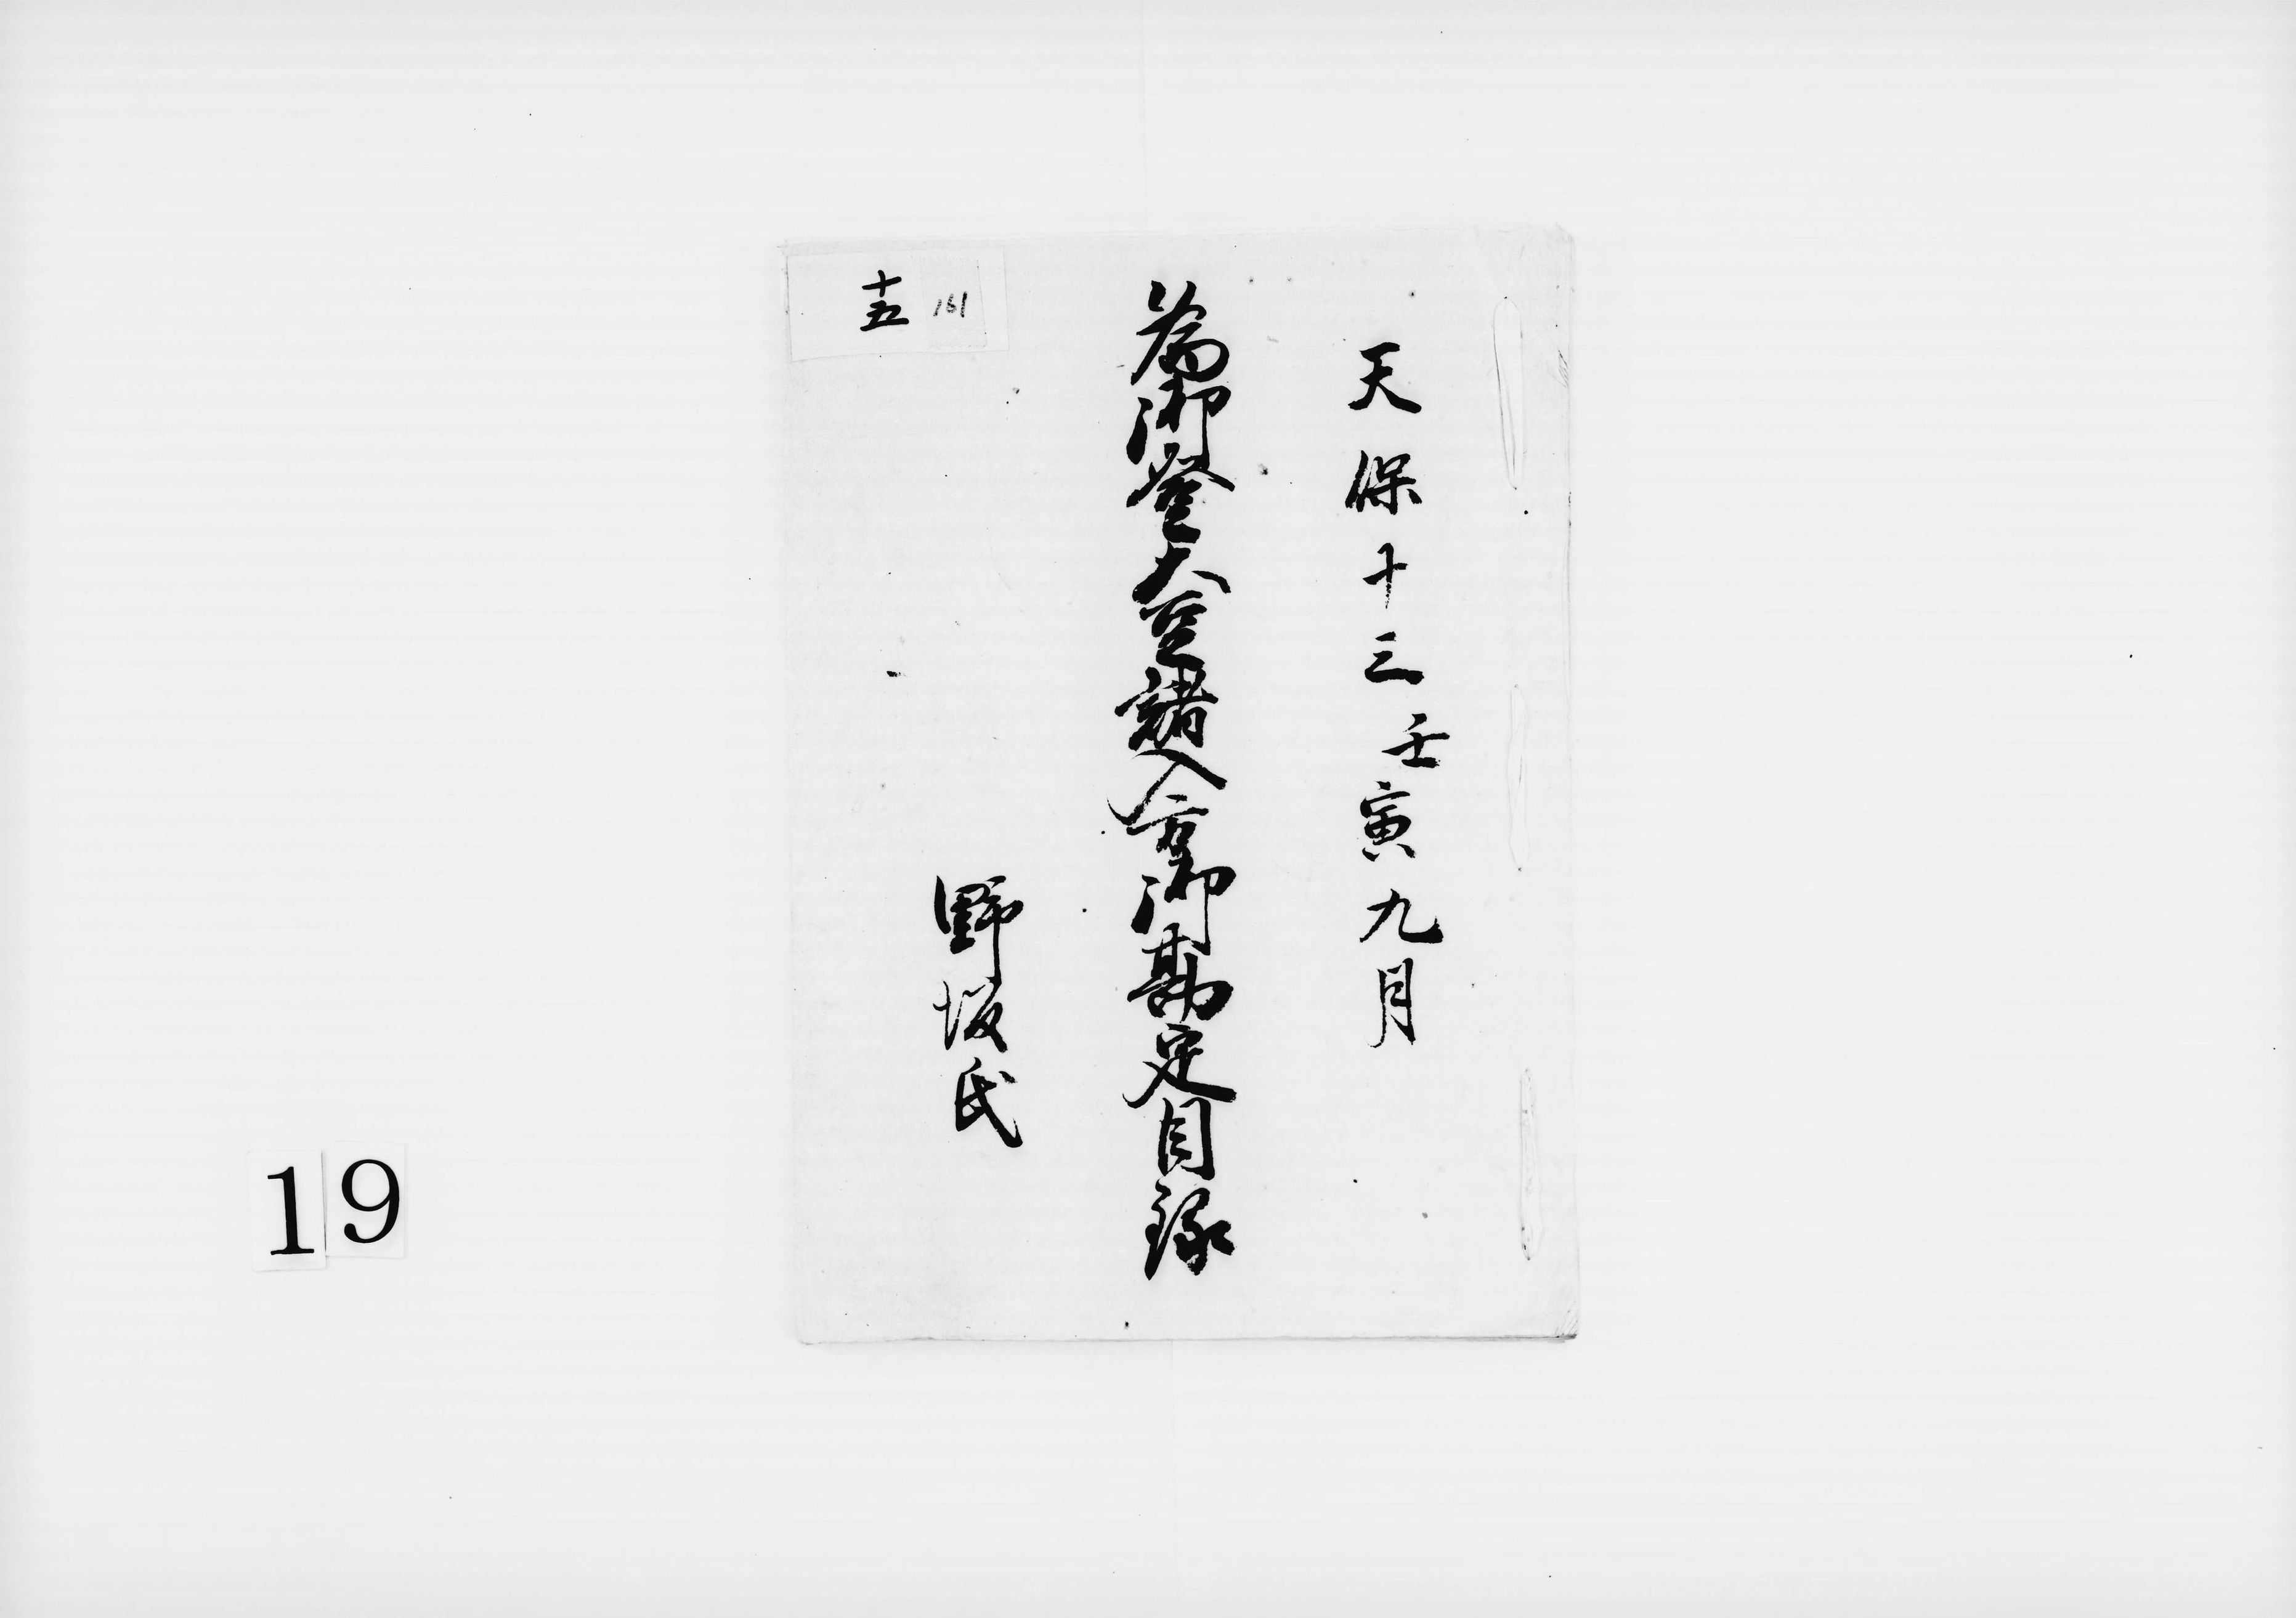 天保十三壬寅九月
為御登大豆諸入方御勘定目録
野坂氏
十五
161
19